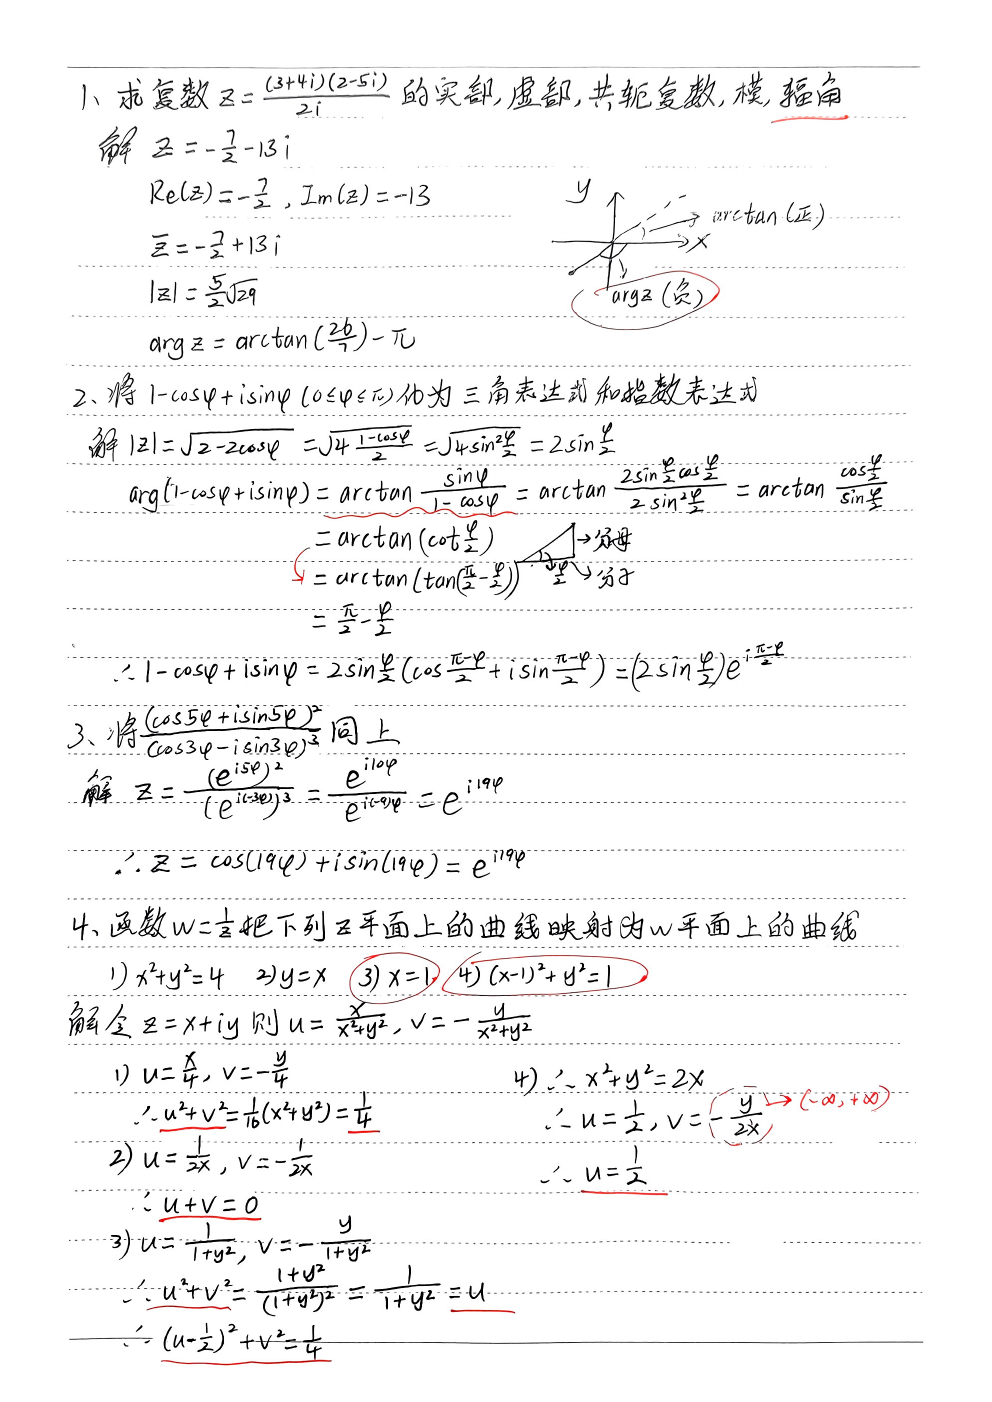 1、求复数 z = (3+4i)(2-5i) / 2i 的实部,虚部,共轭复数,模,辐角
解 z = -7/2 -13i
Re(z) = -7/2 , Im(z) = -13
z̄ = -7/2 +13i
|z| = 5/2 √29
arg z = arctan(26/7) - π
y
x
arctan (正)
argz (负)
2、将 1-cosφ+isinφ (0≤φ≤π)化为三角表达式和指数表达式
解 |z| = √(2-2cosφ) = √(4 (1-cosφ)/2) = √(4sin²φ/2) = 2sin φ/2
arg(1-cosφ+isinφ) = arctan sinφ/(1-cosφ) = arctan (2sin φ/2 cos φ/2)/(2sin²φ/2) = arctan (cos φ/2)/(sin φ/2)
= arctan(cot φ/2)
→分母
= arctan(tan(π/2 - φ/2))
φ/2
→分子
= π/2 - φ/2
∴ 1-cosφ+isinφ = 2sin φ/2 (cos (π-φ)/2 + isin (π-φ)/2) = (2sin φ/2)e^(i (π-φ)/2)
3、将 (cos5φ+isin5φ)²/(cos3φ-isin3φ)³ 同上
解 z = (e^(i5φ))²/(e^(i(-3φ)))³ = e^(i10φ)/e^(i(-9)φ) = e^(i19φ)
∴ z = cos(19φ)+isin(19φ) = e^(i19φ)
4、函数 w = 1/z 把下列z平面上的曲线映射为w平面上的曲线
1) x²+y²=4 2) y=x 3) x=1 4) (x-1)²+y²=1
解 令 z=x+iy 则 u = x/(x²+y²), v = - y/(x²+y²)
1) u = x/4, v = -y/4
∴ u²+v² = 1/16 (x²+y²) = 1/4
2) u = 1/2x , v = -1/2x
∴ u+v = 0
3) u = 1/(1+y²), v = - y/(1+y²)
∴ u²+v² = (1+y²)/(1+y²)² = 1/(1+y²) = u
∴ (u-1/2)²+v² = 1/4
4) ∴ x²+y²=2x
∴ u = 1/2, v = - y/2x → (-∞, +∞)
∴ u = 1/2